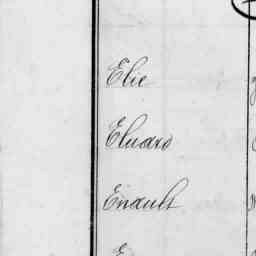 Elie
Eluard
Enault
E